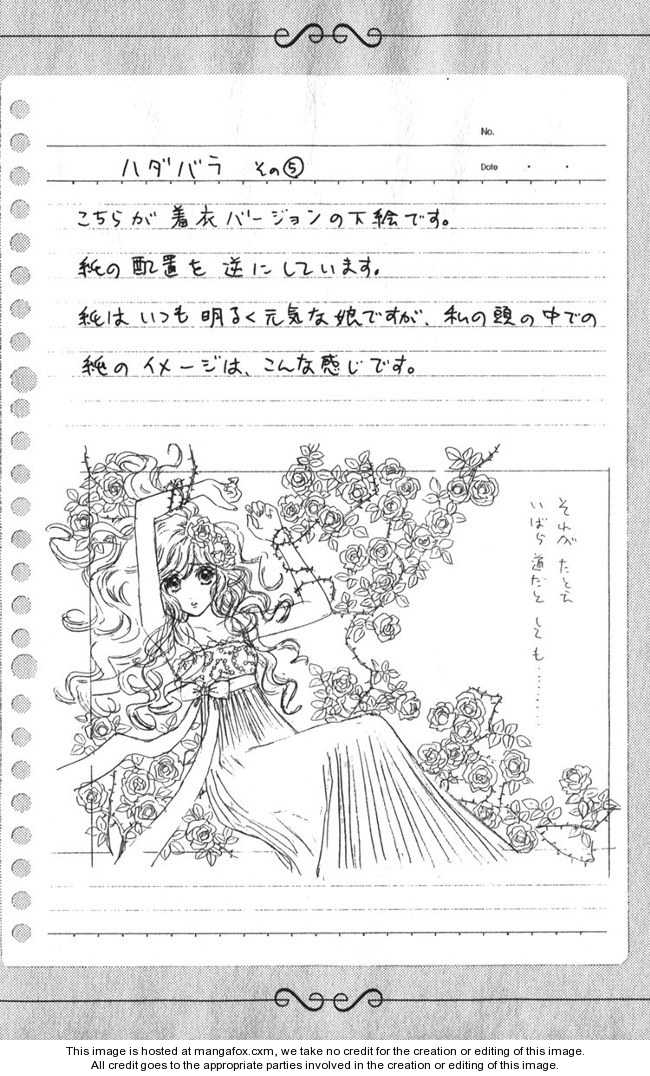 No.
ハダバラ その⑤
Date ・ ・
こちらが 着衣バージョンの下絵です。
純の 配置を 逆に しています。
純は いつも 明るく元気な娘ですが、私の頭の中での
純の イメージは、こんな感じです。
それが たとえ
いばら道だと しても………
This image is hosted at mangafox.cxm, we take no credit for the creation or editing of this image.
All credit goes to the appropriate parties involved in the creation or editing of this image.